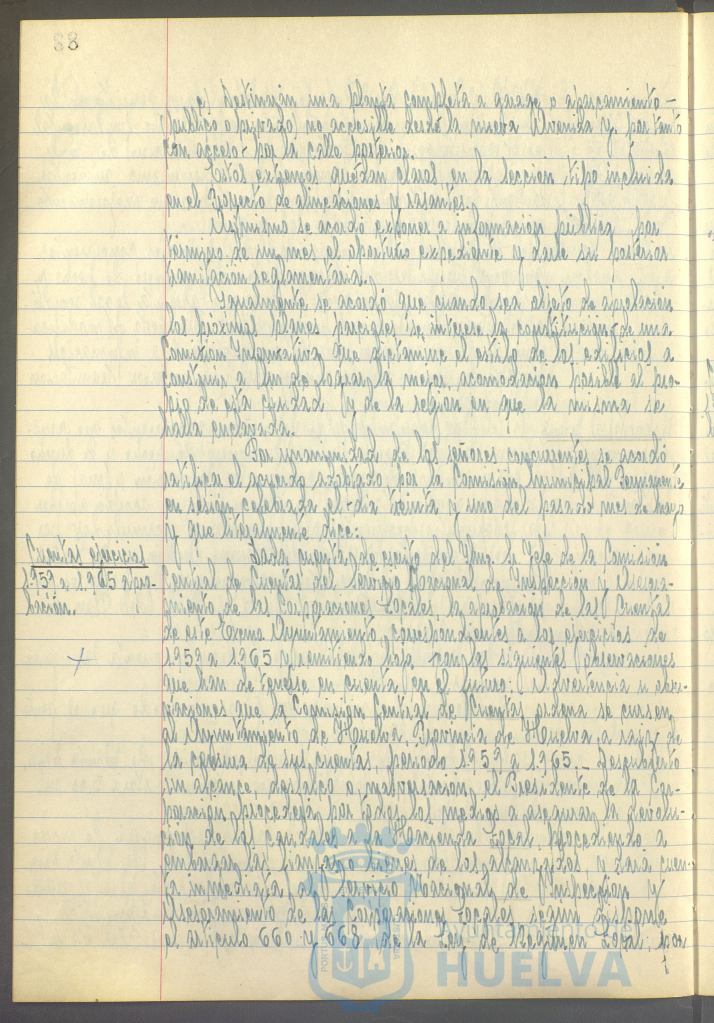 88
c) Destinarán una planta completa a garage o aparcamiento –
(público o privado) no accesible desde la nueva Avenida y, por tanto
con acceso por la calle posterior.
Estos extremos quedan claros en la sección tipo incluida
en el Proyecto de alineaciones y rasantes.
Asimismo se acordó exponer a información pública por
término de un mes el oportuno expediente y darle su posterior
tramitación reglamentaria.
Igualmente se acordó que cuando sea objeto de aprobación
los próximos planes parciales se interese la constitución de una
Comisión Informativa que dictamine el estilo de los edificios a
construir a fin de lograr la mejor acomodación posible al pro-
pio de esta ciudad y de la región en que la misma se
halla enclavada.
Por unanimidad de los señores concurrentes se acordó
ratificar el acuerdo adoptado por la Comisión Municipal Permanente
en sesión celebrada el día treinta y uno del pasado mes de Mayo
y que literalmente dice:
Cuentas ejercicios
1.959 a 1.965 apro-
bación.
Dada cuenta de escrito del Ilmo. Sr. Jefe de la Comisión
Central de Cuentas del Servicio Nacional de Inspección y Asesora-
miento de las Corporaciones Locales, la aprobación de las Cuentas
de este Excmo Ayuntamiento, correspondientes a los ejercicios de
1959 a 1965 y remitiendo hoja con las siguientes observaciones
que han de tenerse en cuenta en el futuro: Advertencia u obser-
vaciones que la Comisión Central de Cuentas ordena se cursen
al Ayuntamiento de Huelva, Provincia de Huelva, a raíz de
la censura de sus cuentas, período 1959 a 1965.– Descubierto
un alcance, desfalco o malversación, el Presidente de la Cor-
poración procederá por todos los medios a asegurar la devolu-
ción de los caudales a la Hacienda Local, procediendo a
embargar las fianzas o bienes de los alcanzados, y dará cuen-
ta inmediata al Servicio Nacional de Inspección y
Asesoramiento de las Corporaciones Locales según dispone
el artículo 660 y 668 de la Ley de Régimen Local, por
Ayuntamiento de
HUELVA